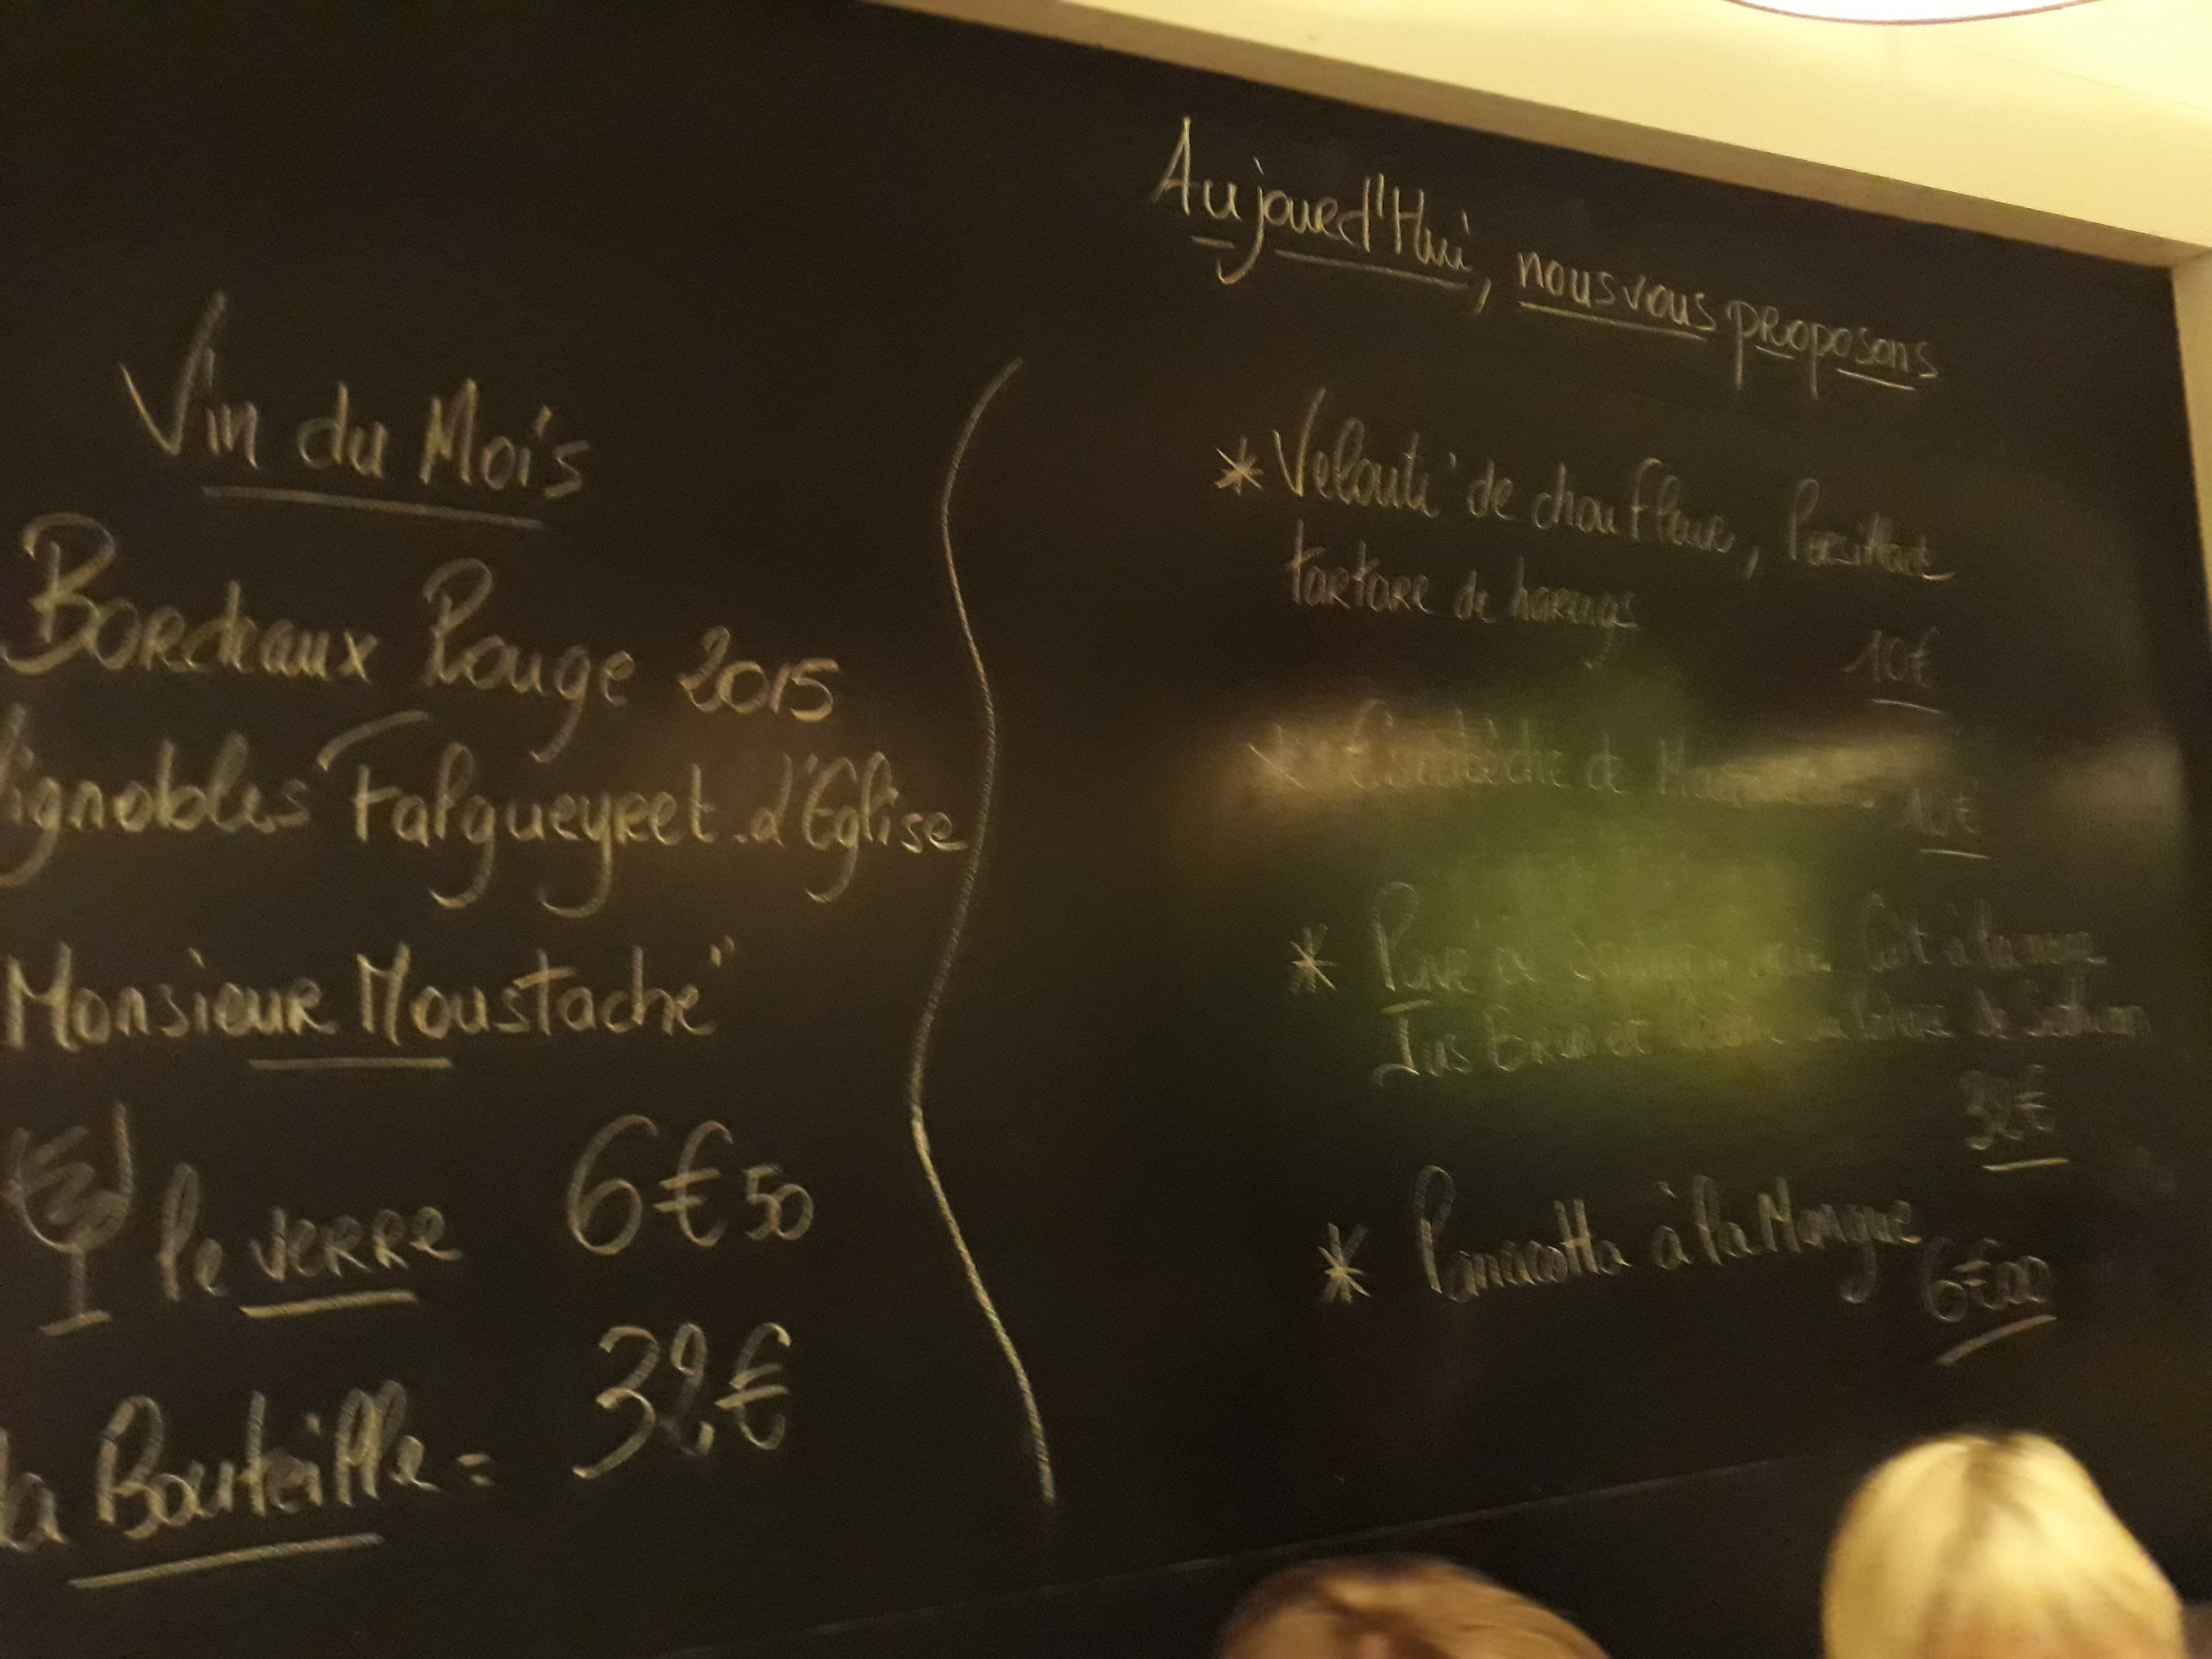 Vin du Mois
Bordeaux Rouge 2015
Vignobles Falgueyret-d'Eglise
Monsieur Moustache"
le verre 6€50
la Bouteille = 32€
Aujourd'Hui, nous vous proposons
* Velouté de chou Fleur, Persillade
tartare de harengs
10€
* de
* Pavé de Cuit à la
Jus Brun et de
32€
* Panacotta à la Mangue
6€00